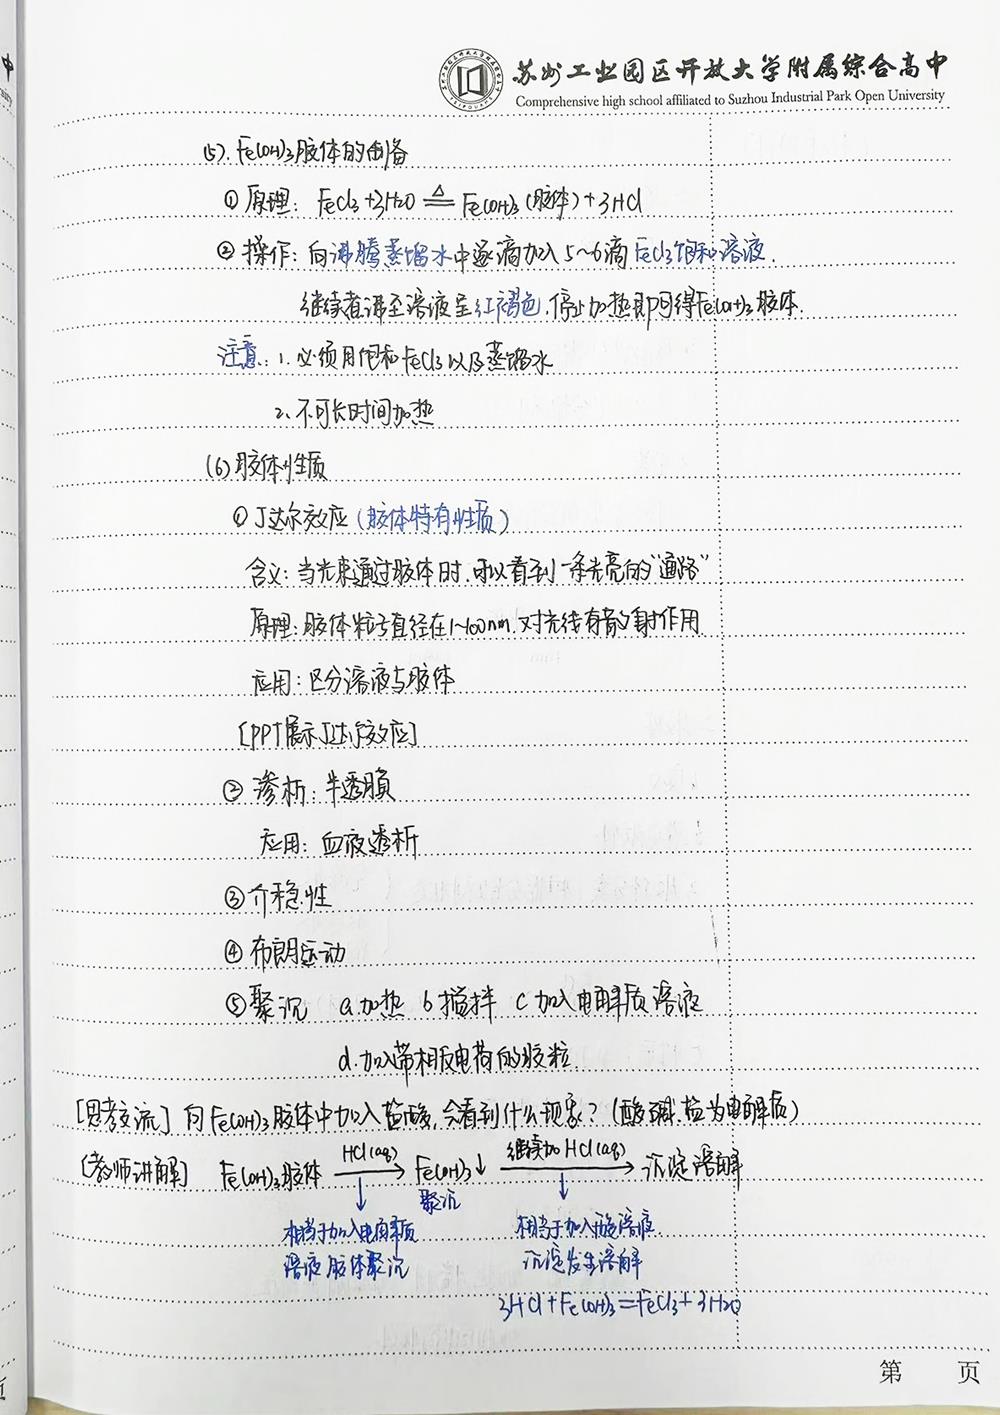 苏州工业园区开放大学附属综合高中
Comprehensive high school affiliated to Suzhou Industrial Park Open University
(5). Fe(OH)3胶体的制备
① 原理: FeCl3+3H2O ≜ Fe(OH)3(胶体)+3HCl
② 操作: 向沸腾蒸馏水中逐滴加入5~6滴FeCl3饱和溶液.
继续煮沸至溶液呈红褐色.停止加热即可得Fe(OH)3胶体.
注意: 1. 必须用饱和FeCl3以及蒸馏水
2. 不可长时间加热
(6) 胶体性质
① 丁达尔效应 (胶体特有性质)
含义: 当光束通过胶体时.可以看到一条光亮的"通路"
原理: 胶体粒子直径在1~100nm.对光线有散射作用
应用: 区分溶液与胶体
[PPT展示丁达尔效应]
② 渗析: 半透膜
应用: 血液透析
③ 介稳性
④ 布朗运动
⑤ 聚沉 a.加热 b 搅拌 c 加入电解质溶液
d. 加入带相反电荷的胶粒.
[思考交流] 向Fe(OH)3胶体中加入盐酸,会看到什么现象? (酸.碱.盐为电解质)
[教师讲解] Fe(OH)3胶体 HCl(aq)→ Fe(OH)3↓ 继续加HCl(aq)→ 沉淀溶解
聚沉
相当于加入电解质 相当于加入酸溶液.
溶液 胶体聚沉 沉淀发生溶解
3HCl+Fe(OH)3=FeCl3+3H2O
第 页